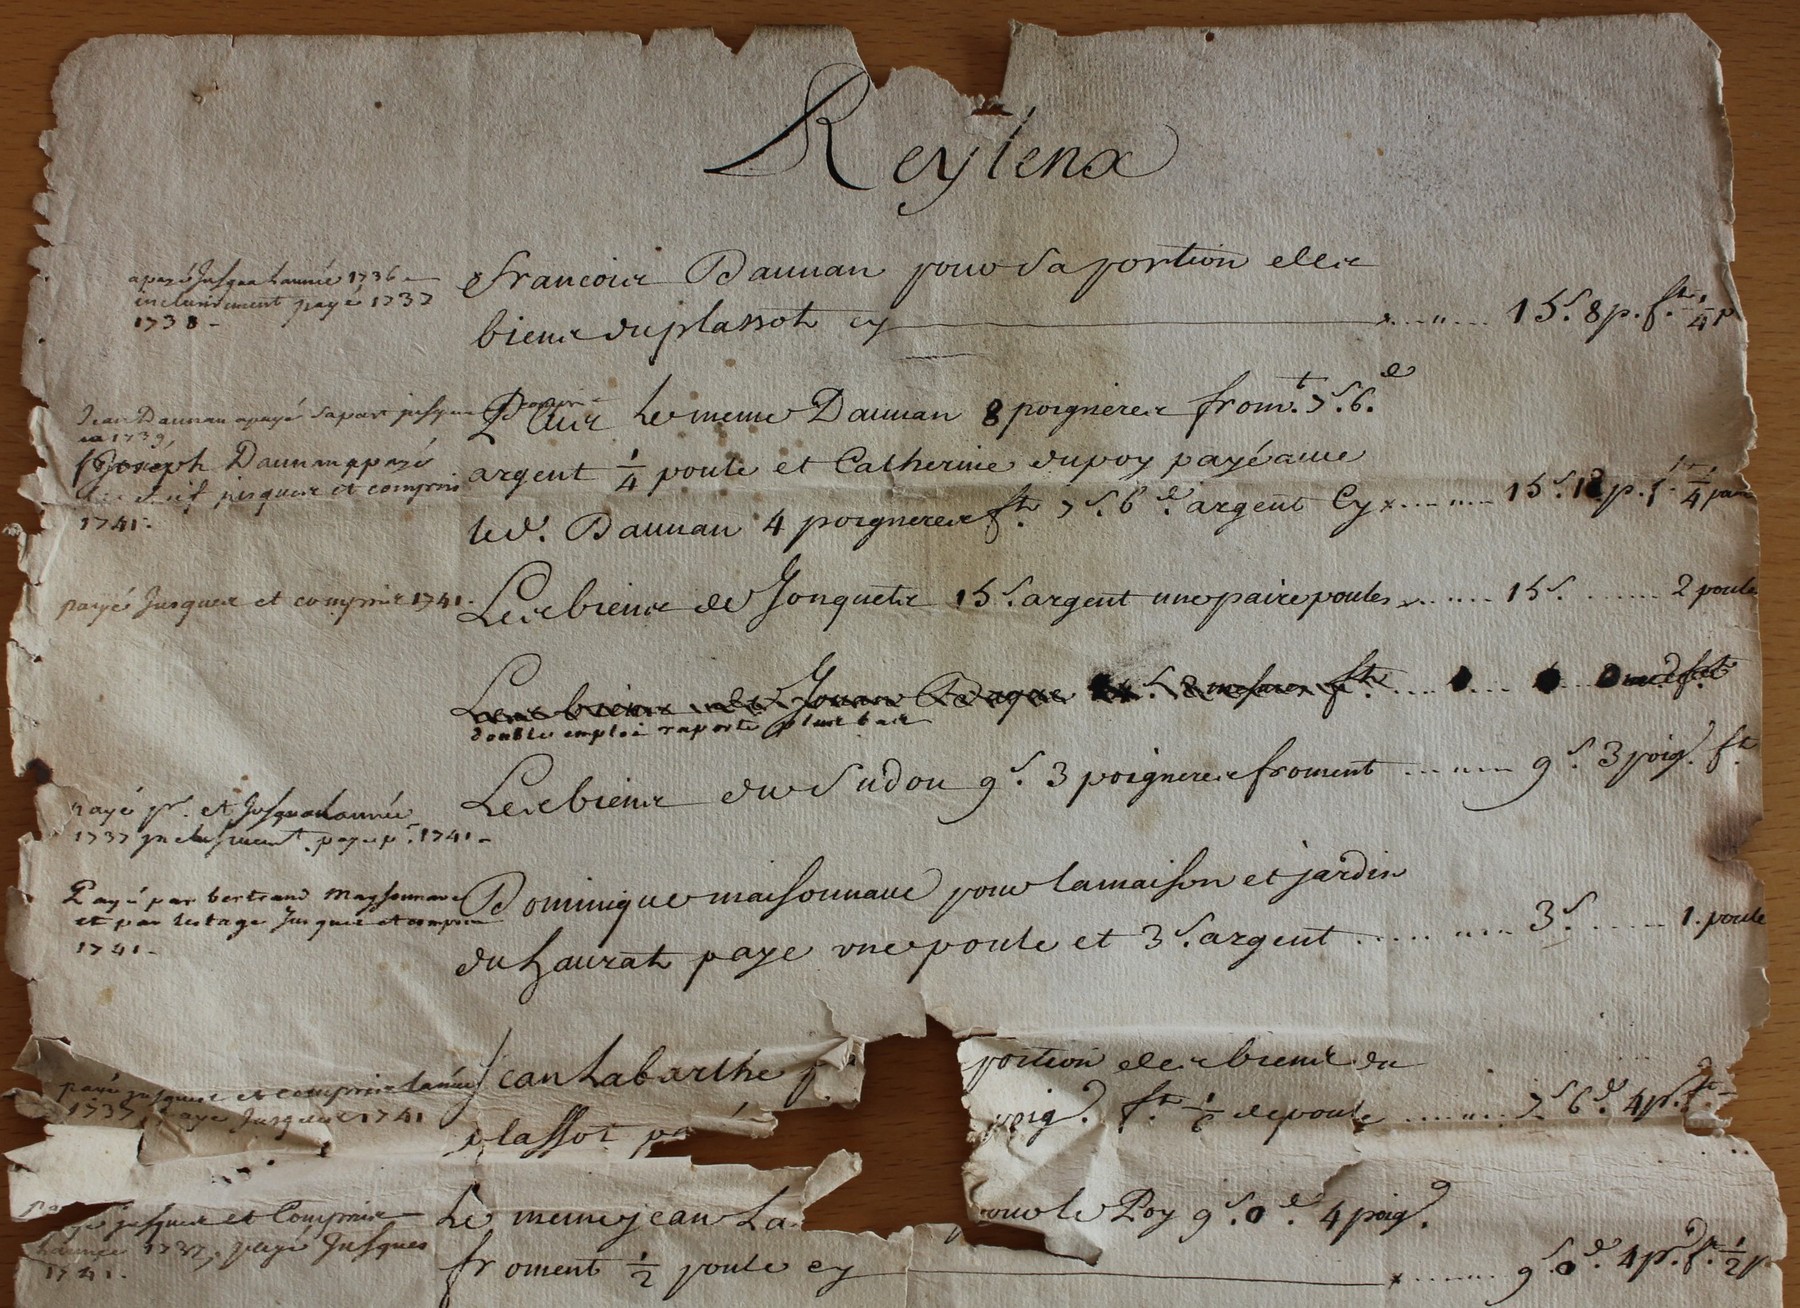 Reylenx
a payé Jusqua Lannée 1736
inclusivement payé 1737
1738 -
francois Daunan pour sa portion des
biens du plassot cy ... 15s. 8 p. ft. 1/4 p
Jean Daunan a payé sa part jusque
1739,
Joseph Daunan a payé
jusques et compris
1741.
Plus le meme Daunan 8 poigneres from.t 7s. 6d
argent 1/4 poule et Catherine dupoy payé avec
led. Daunan 4 poigneres ft. 7s. 6d. argent Cy ... 15s. 12 p. ft. 1/4
payé Jusques et compris 1741.
Les biens de Jonquets 15s. argent une paire poules ... 15s. ... 2 poules
Les biens de
double emploi raporté plus bas
Les biens du Sudou 9s. 3 poigneres froment ... 9s. 3 poig. ft.
payé pr. et Jusqua Lannée
1737 inclusivement. payé pr. 1741 -
Payé par bertrand Maysonnave
et par Lestage Jusques et compris
1741 -
Dominique maisonnave pour la maison et jardin
du haurat paye une poule et 3s. argent ... 3s. ... 1. poule
payé jusques et compris Lannée
1737, payé Jusques 1741
jean Labarthe p portion des biens du
plassot pa poig. ft. 1/6 de poule ... 7s 6d. 4 p. ft
jusques et Compris
Lannée 1737, payé Jusques
1741.
Le meme jean La pour le Poy 9s. 0d. 4 poig.
froment 1/2 poule cy ... 9s. 0d. 4 p. ft. 1/2 p